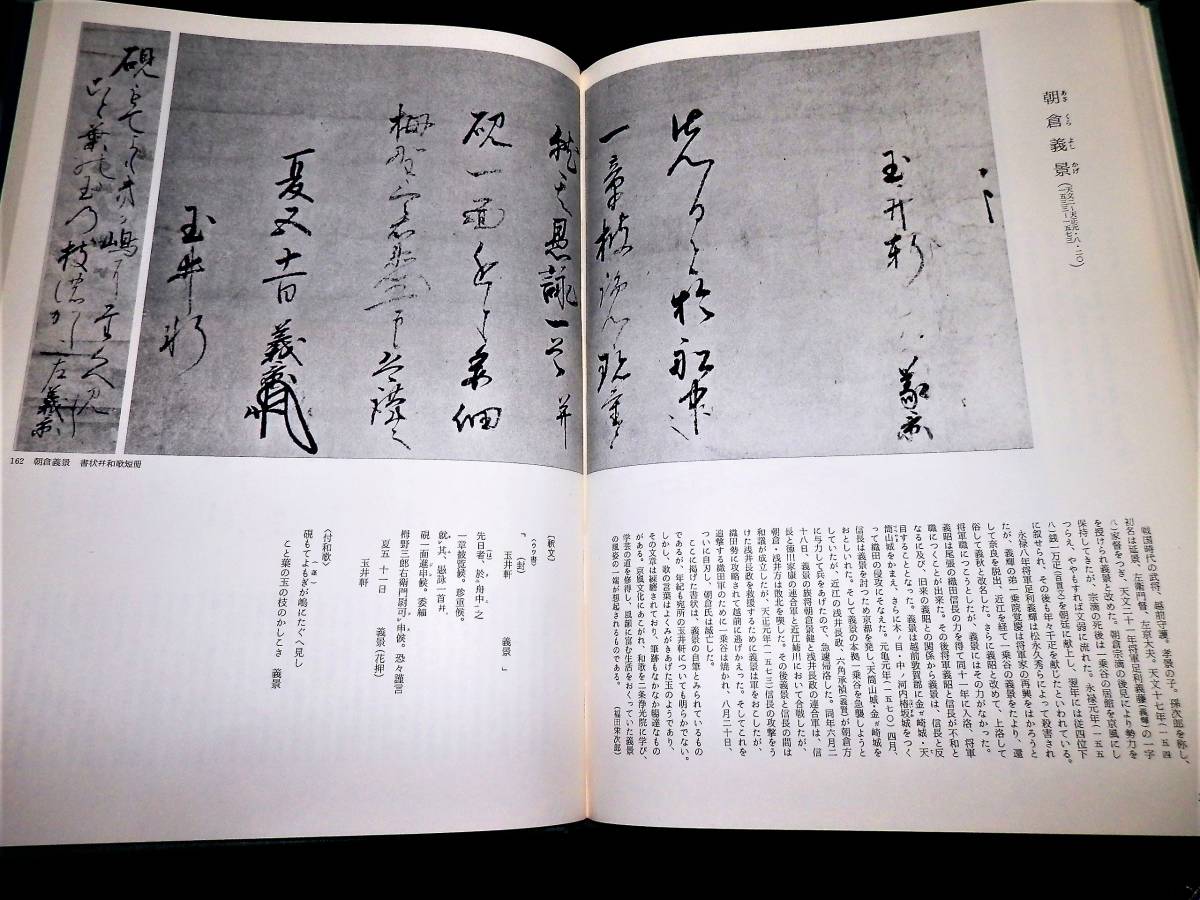 朝倉義景
あさ くら よし かげ
(天文二〜天正元・八・二〇)
(一五三三〜一五七三)
戦国時代の武将、越前守護。孝景の子。孫次郎を称し、
初名は延景、左衛門督、左京大夫。天文十七年(一五四
八)家督をつぎ、天文二十一年将軍足利義藤(義輝)の一字
を授けられ義景と改めた。朝倉宗滴の後見により勢力を
保持してきたが、宗滴の死後は一乗谷の居館を京風にし
つらえ、ややもすれば文弱に流れた。永禄元年(一五五
八)銭一万疋(百貫文)を朝廷に献上し、翌年には従四位下
に叙せられ、その後も年々千疋を献じたといわれている。
永禄八年将軍足利義輝は松永久秀らによって殺害され
たが、義輝の弟一乗院覚慶は将軍家の再興をはかろうと
して奈良を脱出、近江を経て一乗谷の義景をたより、還
俗して義秋と改名した。さらに義昭と改めて、上洛して
将軍職につこうとしたが、義景にはその力がなかった。
義昭は尾張の織田信長の力を得て同十一年に入洛、将軍
職につくことが出来た。その後将軍義昭と信長が不和と
なるに及び、旧来の義昭との関係から義景は、信長と反
目することとなった。義景は越前敦賀郡に金ヶ崎城・天
筒山城をかまえ、さらに木ノ目・中ノ河内椿坂城をつく
って織田の侵攻にそなえた。元亀元年(一五七〇)四月、
信長は義景を討つため京都を発し、天筒山城・金ヶ崎城を
おとしいれた。そして義景の本拠一乗谷を急襲しようと
していたが、近江の浅井長政、六角承禎(義賢)が朝倉方
に与力して兵をあげたので、急遽帰洛した。同年六月二
十八日、義景の族将朝倉景健と浅井長政の連合軍は、信
長と徳川家康の連合軍と近江姉川において合戦したが、
朝倉・浅井方は敗北を喫した。その後義景と信長の間は
和議が成立したが、天正元年(一五七三)信長の攻撃をう
けた浅井長政を救援するために義景は軍をおこしたが、
織田勢に攻略されて越前に逃げかえった。そしてこれを
追撃する織田軍のために一乗谷は焼かれ、八月二十日、
ついに自刃し、朝倉氏は滅亡した。
ここに掲げた書状は、義景の自筆とみられているもの
であるが、年紀も宛所の玉井軒についても明らかでない。
しかし、歌の言葉はよくみがきあげた玉のようであり、
その文章は練磨されており、筆跡もなかなか暢達なもの
がある。京風文化にあこがれ、和歌を二条浄光院に学び、
学芸の道を修得し、風雅に富む生活をおくっていた義景
の風姿の一端が想起されるものである。
(福田栄次郎)
162 朝倉義景 書状幷和歌短冊
〈釈文〉
(ウワ書)
「(封)
玉井軒 義景 」
先日者、於舟中之
一章被覧候。珍重候。
就其、愚詠一首幷
硯一面進申候。委細
栂野三郎右衛門尉可申候。恐々謹言
夏五 十一日 義景(花押)
玉井軒
〈付和歌〉
(蓬)
硯もてよもぎが嶋にたぐへ見し
こと葉の玉の枝のかしこさ 義景